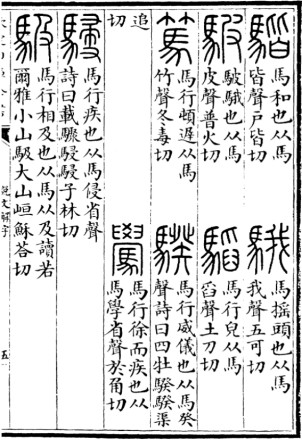 馬和也从馬
皆聲戶皆切
騀
馬搖頭也从馬
我聲五可切
駊
駊騀也从馬
皮聲普火切
馬行皃从馬
舀聲土刀切
篤
馬行頓遲从馬
竹聲冬毒切
騤
馬行威儀也从馬癸
聲詩曰四牡騤騤渠
追
切
馬行徐而疾也从
馬學省聲於角切
駸
馬行疾也从馬侵省聲
詩曰載驟駸駸子林切
馺
馬行相及也从馬从及讀若
爾雅小山馺大山峘穌荅切
說文解字